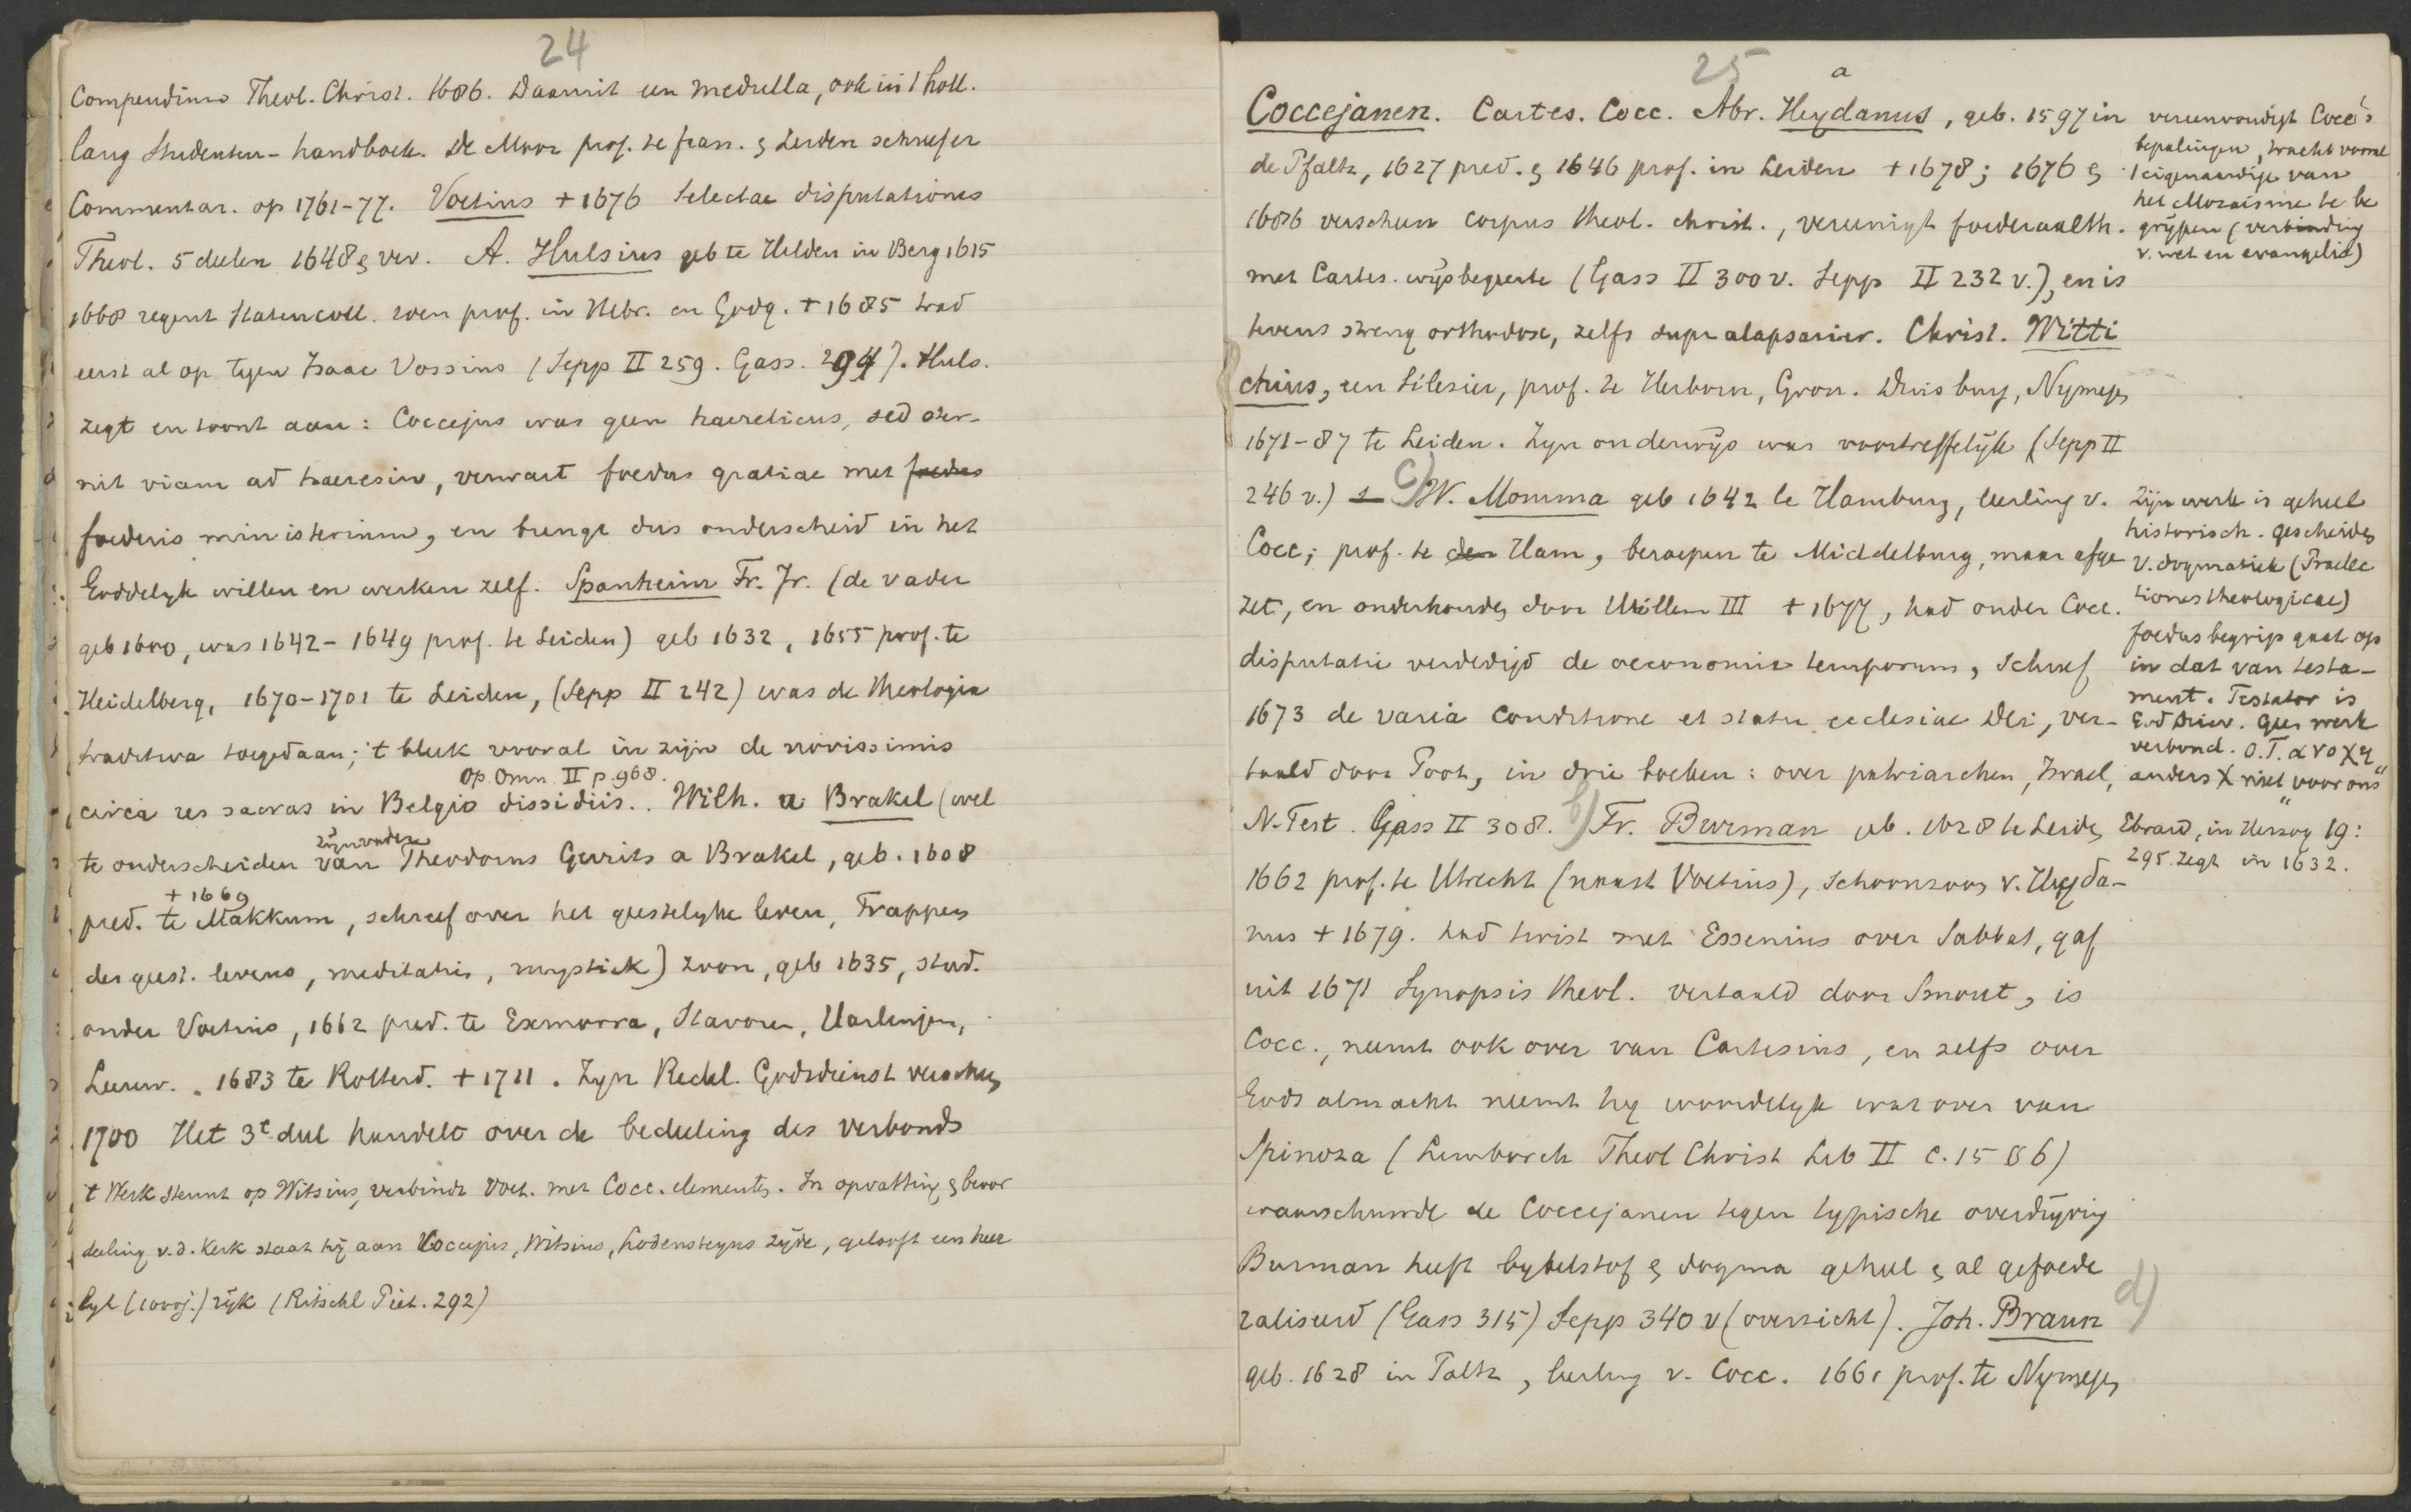 24
Compendium Theol. Christ. 1686. Daaruit een medulla, ook in 't holl.
lang studenten-handboek. De Moor prof. te fran. & Leiden schreef er
Commentar. op 1761-77. Voetius + 1676 Selectae disputationes
Theol. 5 deelen 1648 & verv. A. Hulsius geb te Hilden in Berg 1615
1668 regent Statencoll. toen prof. in Hebr. en Godg. + 1685 trad
eerst al op tegen Isaac Vossius (Sepp II 259. Gass. 294). Huls.
zegt en toont aan: Coccejus was geen haereticus, sed aper-
uit viam ad haeresin, verwart foedus gratiae met foedus
foederis ministerium, en brengt dus onderscheid in het
Goddelyk willen en werken zelf. Spanheim Fr. Jr. (de vader
geb 1600, was 1642-1649 prof. te Leiden) geb 1632, 1655 prof. te
Heidelberg, 1670-1701 te Leiden, (Sepp II 242) was de theologia
traditiva toegedaan; 't bleek vooral in zijn de novissimis
Op. Omn. II p. 968.
circa res sacras in Belgio dissidiis. Wilh. a Brakel (wel
zijn vader
te onderscheiden van Theodorus Gerrits a Brakel, geb. 1608
+ 1669
pred. te Makkum, schreef over het geestelyke leven, Trappen
des geest. levens, meditatie, mystiek) zoon, geb 1635, stud.
onder Voetius, 1662 pred. te Exmorra, Stavoren, Harlingen,
Leeuw. 1683 te Rotterd. + 1711. Zyn Redel. Godsdienst verscheen
1700 Het 3e deel handelt over de bedeeling des verbonds
't Werk steunt op Witsius, verbindt Voet. met Cocc. elementen. In opvatting & beoor
deeling v.d. Kerk staat hij aan Coccejus, Witsius, Lodensteyns zijde, gelooft een heer
lyk (1000j.) rijk (Ritschl Piet. 292)
25
a
Coccejanen. Cartes. Cocc. Abr. Heydanus, geb. 1597 in
de Pfaltz, 1627 pred. & 1646 prof. in Leiden + 1678; 1676 &
1686 verscheen corpus theol. christ., vereenigt foederaalth.
met Cartes. wijsbegeerte (Gass II 300 v. Sepp II 232 v.), en is
tevens streng orthodox, zelfs supralapsarier. Christ. Witti
chius, een Silesier, prof. te Herborn, Gron. Duisburg, Nymegen
1671-87 te Leiden. Zyn onderwijs was voortreffelijk (Sepp II
246 v.) c) W. Momma geb 1642 te Hamburg, leerling v.
Cocc; prof. te den Ham, beroepen te Middelburg, maar afge
zet, en onderhouden door Willem III + 1677, had onder Cocc.
disputatie verdedigd de oeconomia temporum, schreef
1673 de varia conditione et statu ecclesiae Dei, ver-
taald door Poot, in drie boeken: over patriarchen, Israel,
N. Test. Gass II 308. b) Fr. Burman geb. 1628 te Leiden
1662 prof. te Utrecht (naast Voetius), schoonzoon v. Heyda-
nus + 1679. had twist met Essenius over Sabbat, gaf
uit 1671 Synopsis theol. vertaald door Smout, is
Cocc., neemt ook over van Cartesius, en zelfs over
Gods almacht neemt hy woordelyk wat over van
Spinoza (Limborch Theol Christ Lib II c. 15 § 6)
waarschuwde de Coccejanen tegen typische overdrijving
Burman heeft bybelstof & dogma geheel & al gefoede
raliseerd (Gass 315) Sepp 340 v (overzicht). Joh. Braun d)
geb. 1628 in Paltz, leerling v. Cocc. 1661 prof. te Nymegen
vereenvoudigt Cocc's
bepalingen, tracht vooral
't eigenaardige van
het Mozaisme te be
grijpen (verbinding
v. wet en evangelie)
Zijn werk is geheel
historisch. gescheiden
v. dogmatiek (Praelec
tiones theologicae)
foedusbegrip gaat op
in dat van testa-
ment. Testator is
God Driev. Geen werk
verbond. O.T. ανοχη
anders X niet "voor ons"
Ebrard, in Herzog 19:
295. zegt in 1632.